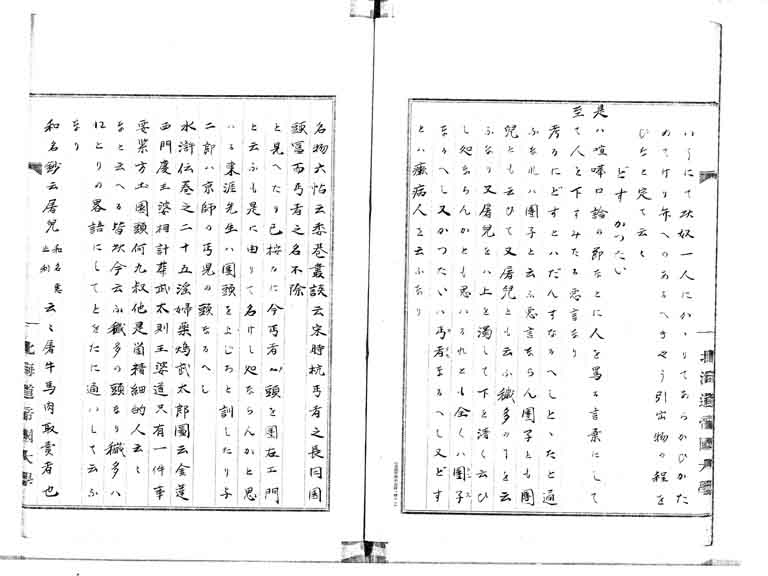 いゝにて次奴一人にかゝりてあらかひかた
めてけり年へのあるへきやう引出物の程を
ひなと定て云々
どす かつたい
是ハ喧嘩口論の節なとに人を罵る言葉にして
至て人を下すみたる悪言なり
考るにどすとハだんすなるへしとゝたと通
ふなれハ團子と云ふ悪言ならん團子とも團
兒とも云ひて又屠兒とも云ふ穢多のことを云
ふなり又屠兒をハ上を濁して下を清く云ひ
し処ならんかとも思ハるれとも全くハ團子
なるへし又かつたいハ丐者なるへし又どす
とハ癩病人を云ふなり
名物六帖云委巷叢談云宋時杭丐者之長同團
頭富而丐者之名不除
と見へたり已按るに今丐者の頭を團左エ門
と云ふも是に由りて名けし処ならんかと思
ハる東涯先生ハ團頭をよじろと訓したり与
二郎ハ京師の丐児の頭なるへし
水滸伝巻之二十五淫婦薬鴆武太郎圖云金蓮
西門慶王婆相計葬武太則王婆道只有一件事
要緊方土團頭何九叔他是箇精細的人云々
なと云へる皆次今云ふ穢多の頭なり穢多ハ
ゑとりの畧語にしてとをたに通ハして云ふ
なり
和名鈔云屠兒 和名恵止利 云々屠牛馬肉取賣者也
北海道帝國大學
北海道帝國大學